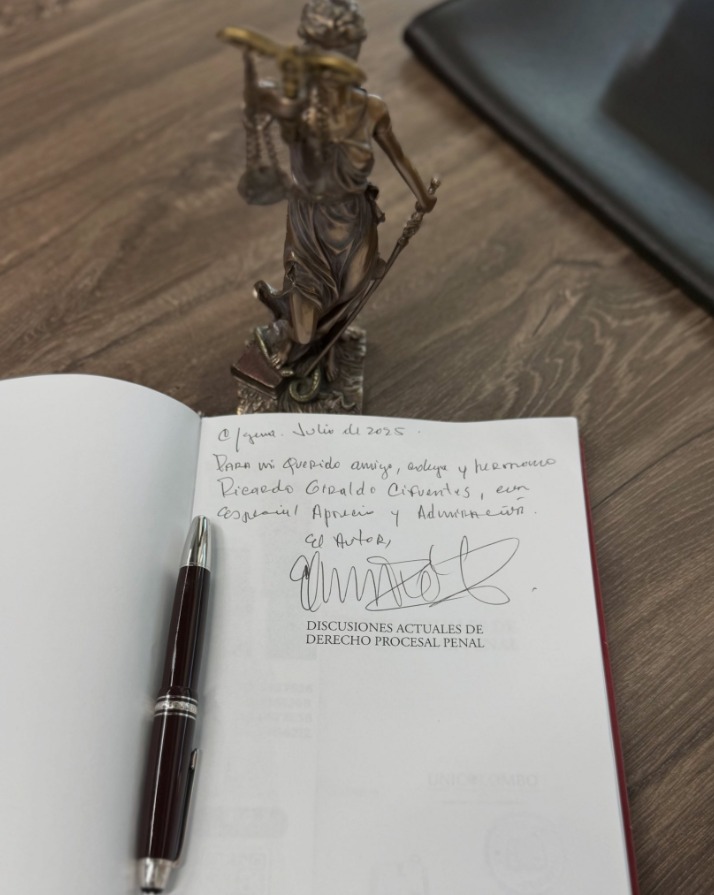 C/gena. Julio de 2025.
Para mi querido amigo, colega y hermano
Ricardo Giraldo Cifuentes, con
especial Aprecio y Admiración.
El Autor,
DISCUSIONES ACTUALES DE
DERECHO PROCESAL PENAL